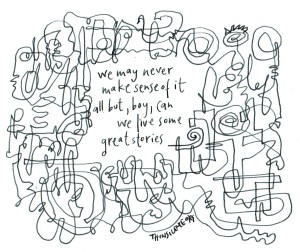 we may never
make sense of it
all but, boy, can
we live some
great stories